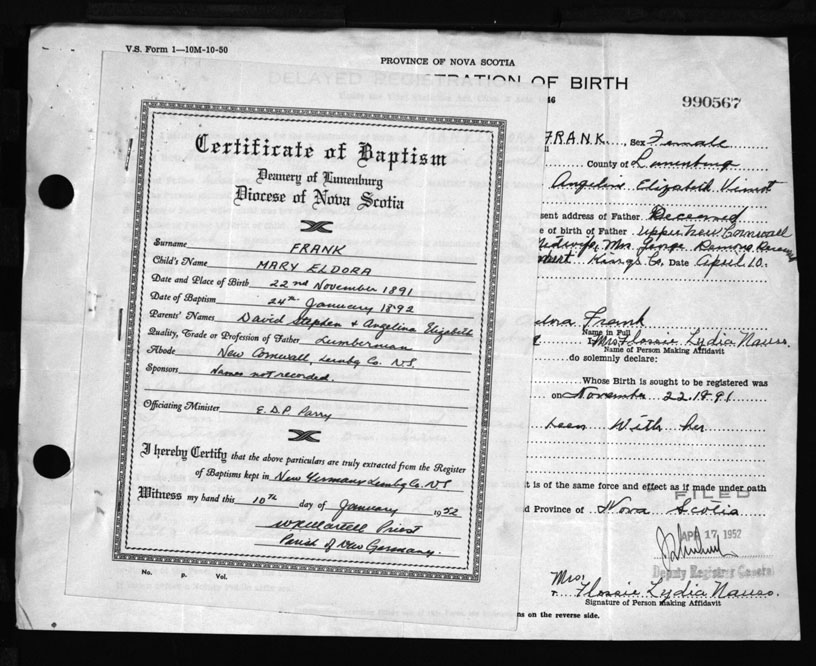 V.S. Form 1—10M-10-50
PROVINCE OF NOVA SCOTIA
DELAYED REGISTRATION OF BIRTH
990567
Certificate of Baptism
Deanery of Lunenburg
Diocese of Nova Scotia
Surname FRANK
Child's Name MARY ELDORA
Date and Place of Birth 22nd November 1891
Date of Baptism 24th January 1892
Parents' Names David Stephen & Angelina Elizabeth
Quality, Trade or Profession of Father Lumberman
Abode New Cornwall Lunbg Co. N.S.
Sponsors Names not recorded.
Officiating Minister E.D.P. Parry
I hereby Certify that the above particulars are truly extracted from the Register
of Baptisms kept in New Germany Lunbg Co. NS
Witness my hand this 10th day of January 1952
Priest
Parish of New Germany.
No. P. Vol.
FRANK, Sex Female
County of Lunenburg
Angelina Elizabeth
sent address of Father Deceased
e of birth of Father Upper New Cornwall
Midwife, Mrs. George
Kings Co, Date April 10.
Frank
Name in Full
I, Mrs Flossie Lydia Nauss
Name of Person Making Affidavit
do solemnly declare:
Whose Birth is sought to be registered was
on November 22, 1891
been With her
t is of the same force and effect as if made under oath
d Province of Nova Scotia
FILED
APR 17 1952
Deputy Registrar General
Mrs. Flossie Lydia Nauss.
Signature of Person Making Affidavit
ns on the reverse side.